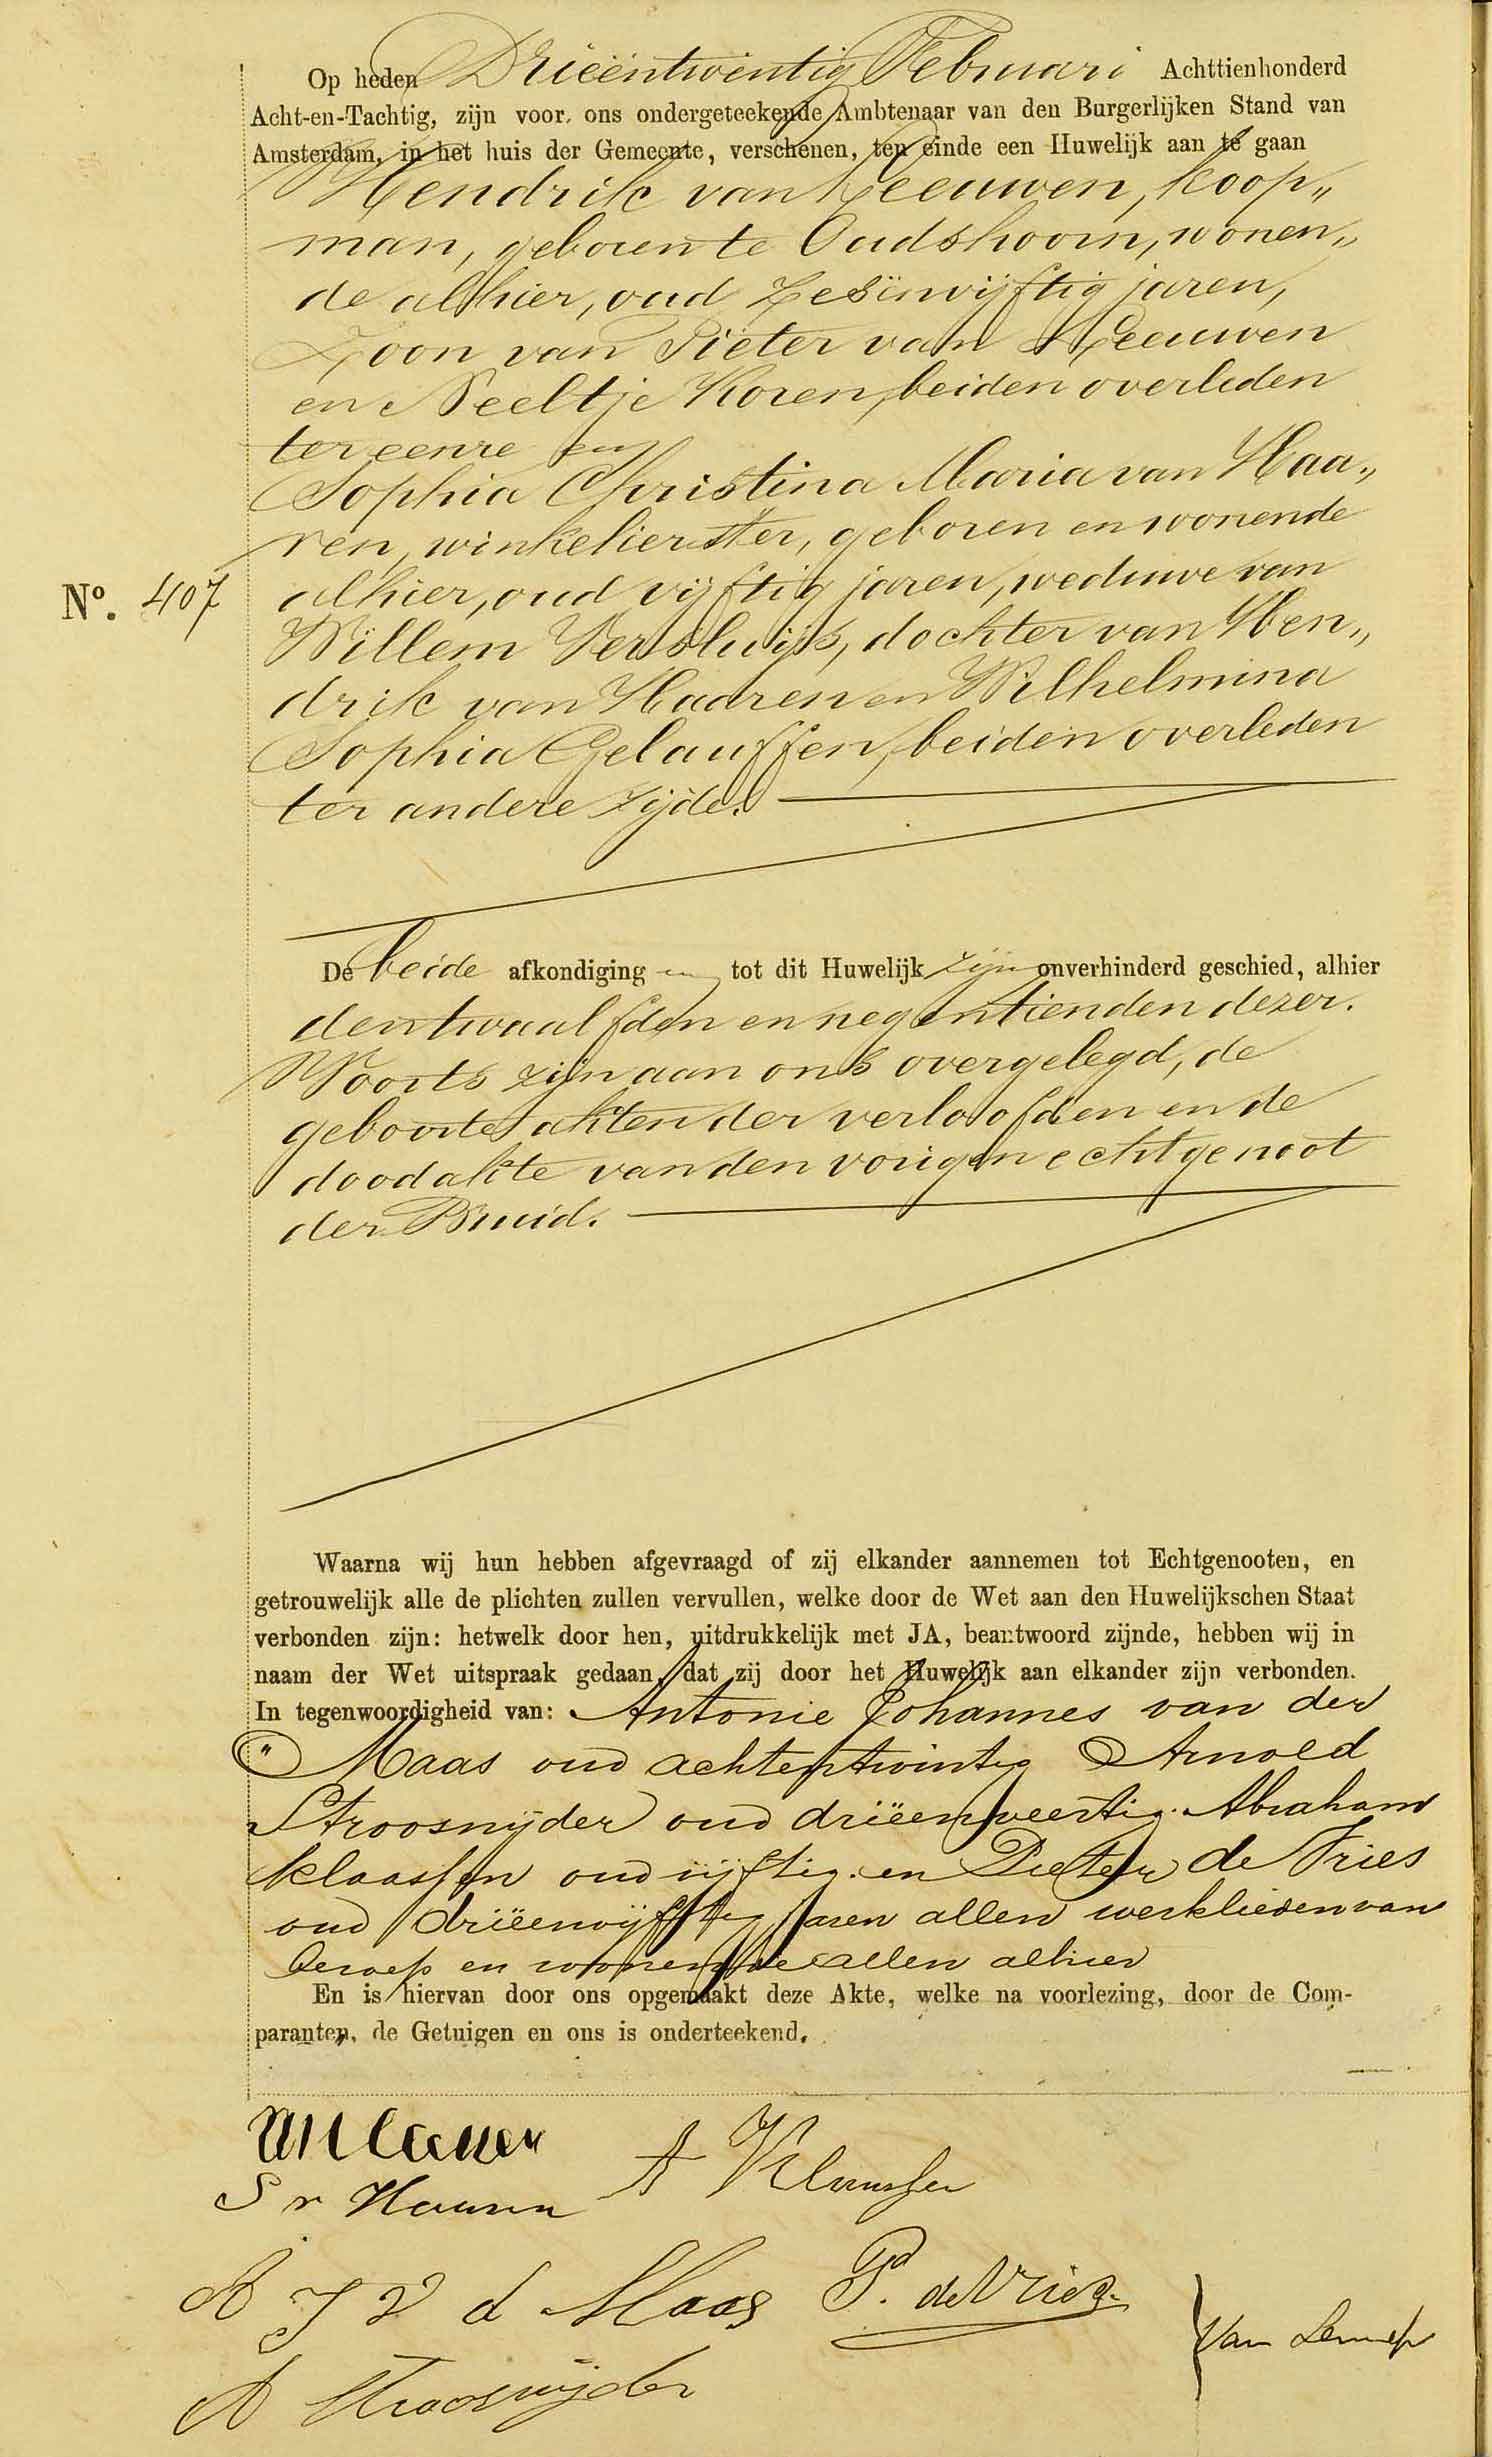 Op heden Drieëntwintig Februari Achttienhonderd
Acht-en-Tachtig, zijn voor ons ondergeteekende Ambtenaar van den Burgerlijken Stand van
Amsterdam, in het huis der Gemeente, verschenen, ten einde een Huwelijk aan te gaan
Hendrik van Leeuwen, koop„
man, geboren te Oudshoorn, wonen„
de alhier, oud Zesënvijftig jaren,
Zoon van Pieter van Leeuwen
en Neeltje Koren, beiden overleden
ter eenre en
Sophia Christina Maria van Haa„
ren, winkelierster, geboren en wonende
Nº. 407 alhier, oud vijftig jaren, weduwe van
Willem Versluijs, dochter van Hen„
drik van Haaren en Wilhelmina
Sophia Gelauffen, beiden overleden
ter andere zijde.
De beide afkondiging en tot dit Huwelijk zijn onverhinderd geschied, alhier
den twaalfden en negentienden dezer.
Voorts zijn aan ons overgelegd, de
geboorteakten der verloofden en de
doodakte van den vorigen echtgenoot
der Bruid.
Waarna wij hun hebben afgevraagd of zij elkander aannemen tot Echtgenooten, en
getrouwelijk alle de plichten zullen vervullen, welke door de Wet aan den Huwelijkschen Staat
verbonden zijn: hetwelk door hen, uitdrukkelijk met JA, beantwoord zijnde, hebben wij in
naam der Wet uitspraak gedaan, dat zij door het Huwelijk aan elkander zijn verbonden.
In tegenwoordigheid van: Antonie Johannes van der
Maas oud achtentwintig Arnold
Stroosnijder oud drieënveertig. Abraham
Klaassen oud vijftig. en Pieter de Vries
oud drieënvijftig jaren allen werklieden van
beroep en wonende allen alhier
En is hiervan door ons opgemaakt deze Akte, welke na voorlezing, door de Com-
paranten, de Getuigen en ons is onderteekend.
A Klaassen
S v Haaren
A J V d Maas P. de Vries
Van Lennep
A Stroosnijder